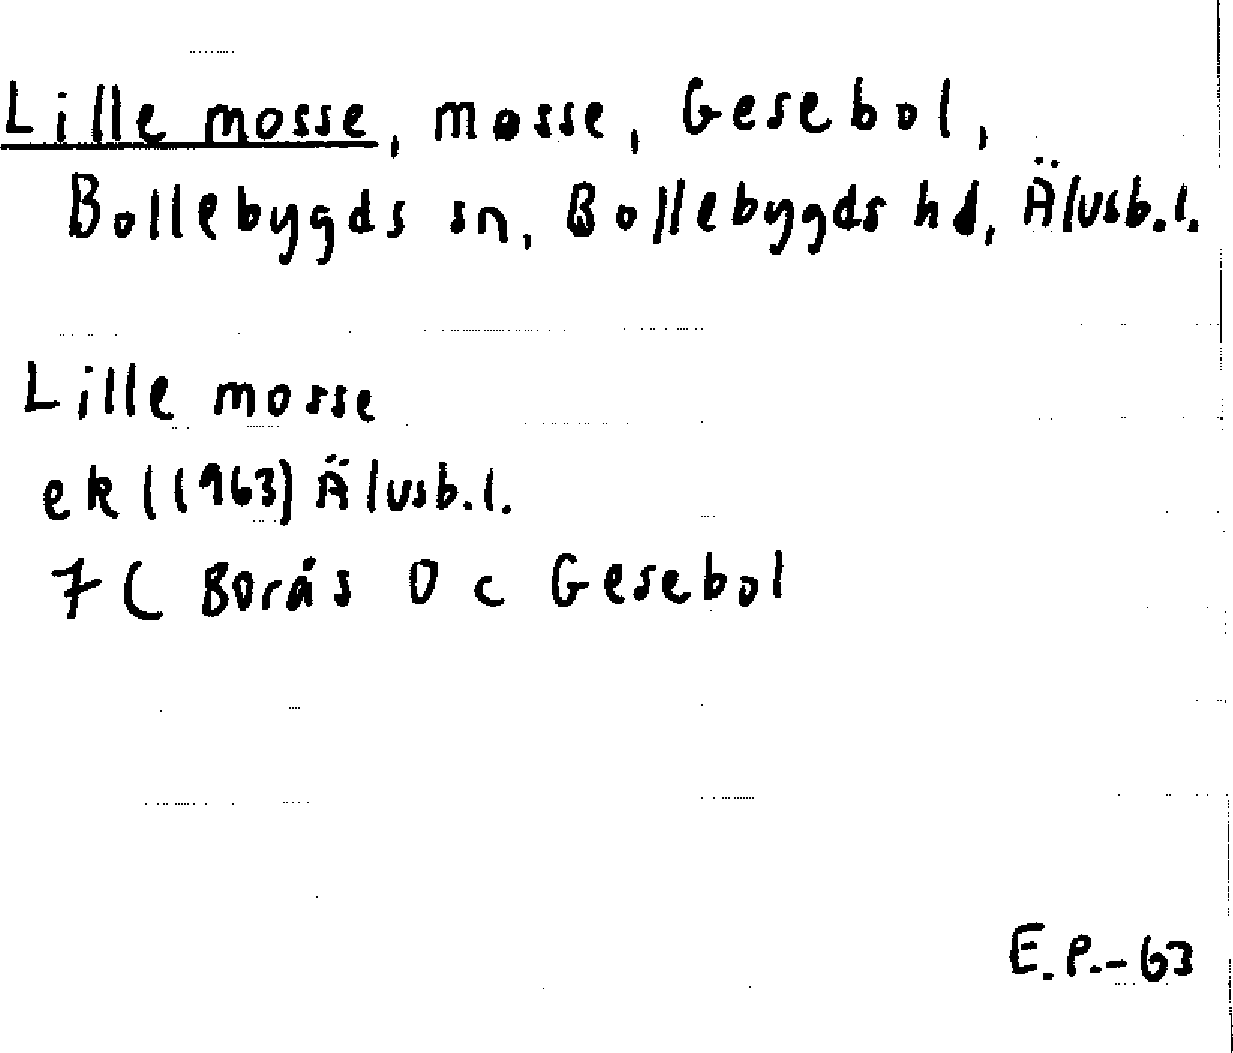 Lille mosse, mosse, Gesebol,
Bollebygds sn, Bollebygds hd, Älvsb.l.
Lille mosse
ekl (1963) Älvsb.l.
7C Borås O c Gesebol
E.P.-63